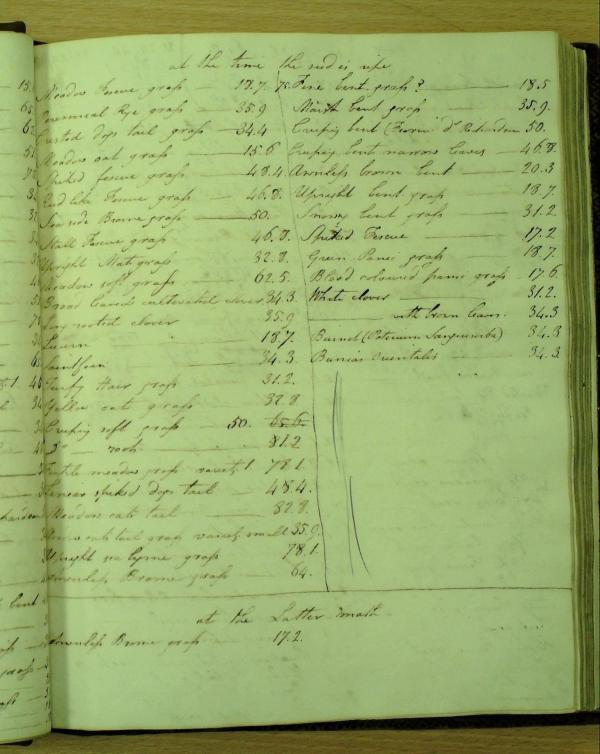 at the time the seed is ripe
Meadow Fescue grass — 18.7.75
Perennial Rye grass — 35.9
Crested dogs tail grass — 34.4
Meadow oat grass — 15.6
Spiked fescue grass — 48.4
Reed like Fescue grass — 46.8.
Sea side Brome grass — 50.
Tall Fescue grass — 46.8.
Upright Mat grass — 32.8
Meadow soft grass — 62.5.
Broad leaved cultivated clover 34.3.
Long rooted clover 35.9
Lucern — 18.7.
Saintfoin — 34.3.
Turfy Hair grass — 31.2.
Yellow oats grass — 32.8
Creeping soft grass — 50. 65.6.
Do — roots — 81.2
Fertile meadow grass variety 1. 78.1.
Linear spiked dogs tail — 48.4.
Meadow cats tail — 82.8.
cats tail grass variety small 35.9.
Upright sea lyme grass 78.1.
Awnless Brome grass — 64.
Fine bent grass? — 18.5
Marsh bent grass — 35.9.
Creeping bent (Fiorin Dr Richardson 50.
Creeping bent narrow leaves 46.8.
Awnless brown bent — 20.3
Upright bent grass 18.7
Snowy bent grass — 31.2.
Spiked Fescue — 17.2
Green Panic grass — 18.7.
Blood coloured panic grass 17.6.
White clover — 31.2.
— with brown leaves. 34.3
Burnet (Poterium Sanguisorba) 34.3
Bunias Orientalis — 34.3
at the Latter math
Awnless Brome grass — 17.2.